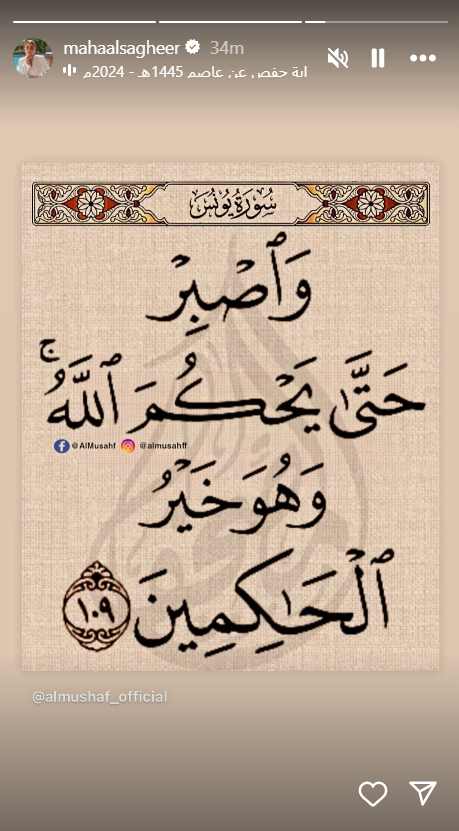 mahaalsagheer 34m
اية حفص عن عاصم 1445هـ - 2024م
سُورَةُ يُونُسَ
وَٱصۡبِرۡ
حَتَّىٰ يَحۡكُمَ ٱللَّهُۚ
@AlMusahf @almusahff
وَهُوَ خَيۡرُ
ٱلۡحَٰكِمِينَ ١٠٩
@almushaf_official